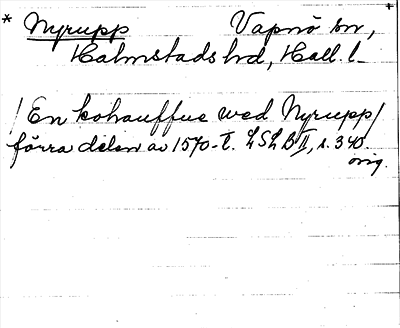 * Nyrupp Vapnö sn, +
Halmstads hd, Hall. l.
/ En kohauffue wed Nyrupp /
förra delen av 1570-t. LSLB II, s. 340.
orig.